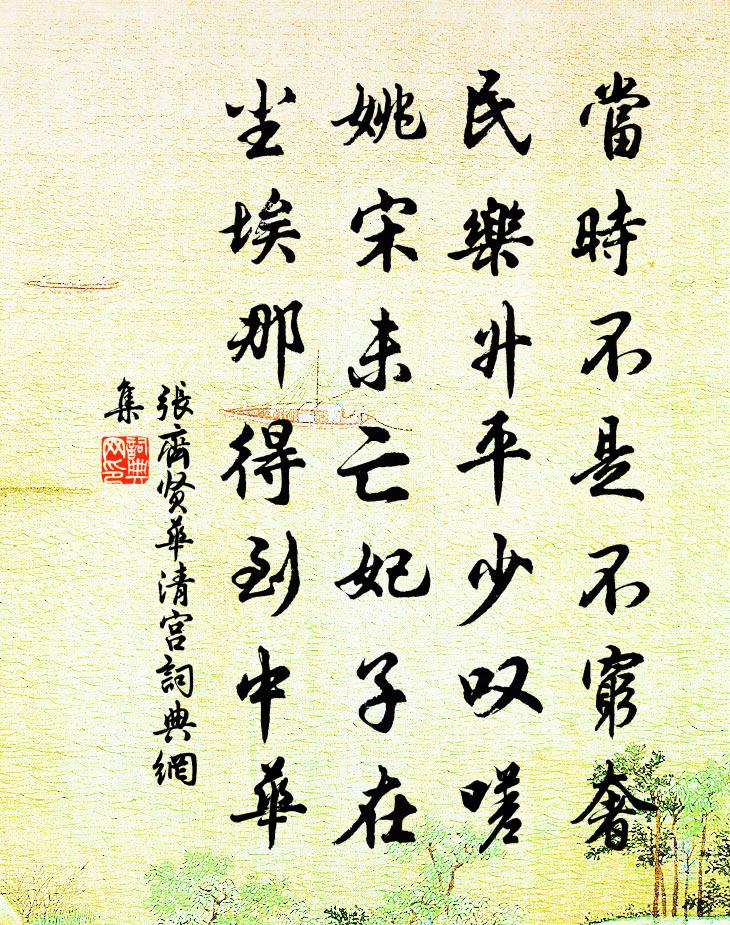 當時不是不窮奢
民樂升平少叹嗟
姚宋未亡妃子在
尘埃那得到中華
張齊贤華清宫詞典網
集
詞典網印